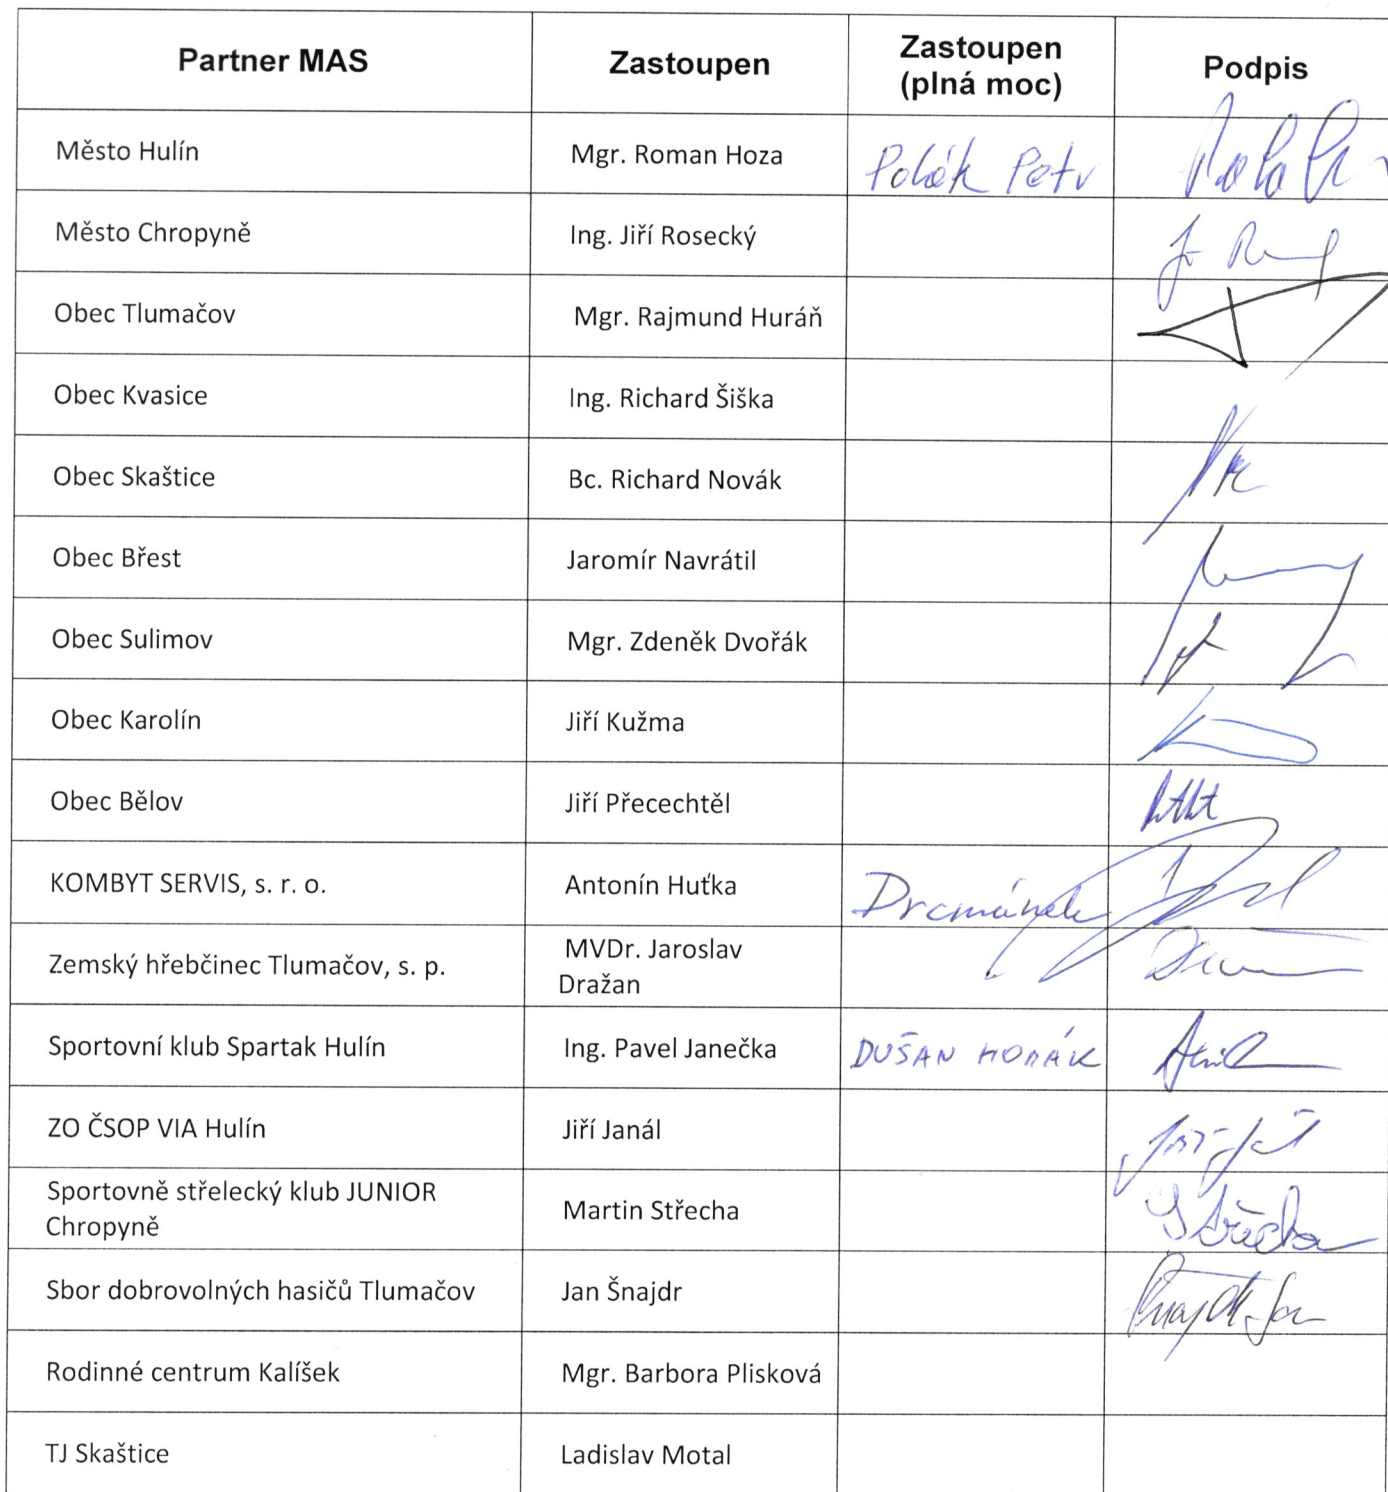 Partner MAS Zastoupen Zastoupen (plná moc) Podpis
Město Hulín Mgr. Roman Hoza Polák Petr
Město Chropyně Ing. Jiří Rosecký
Obec Tlumačov Mgr. Rajmund Huráň
Obec Kvasice Ing. Richard Šiška
Obec Skaštice Bc. Richard Novák
Obec Břest Jaromír Navrátil
Obec Sulimov Mgr. Zdeněk Dvořák
Obec Karolín Jiří Kužma
Obec Bělov Jiří Přecechtěl
KOMBYT SERVIS, s. r. o. Antonín Huťka
Zemský hřebčinec Tlumačov, s. p. MVDr. Jaroslav
Dražan
Sportovní klub Spartak Hulín Ing. Pavel Janečka DUŠAN HORÁK
ZO ČSOP VIA Hulín Jiří Janál
Sportovně střelecký klub JUNIOR
Chropyně Martin Střecha Střecha
Sbor dobrovolných hasičů Tlumačov Jan Šnajdr
Rodinné centrum Kalíšek Mgr. Barbora Plisková
TJ Skaštice Ladislav Motal